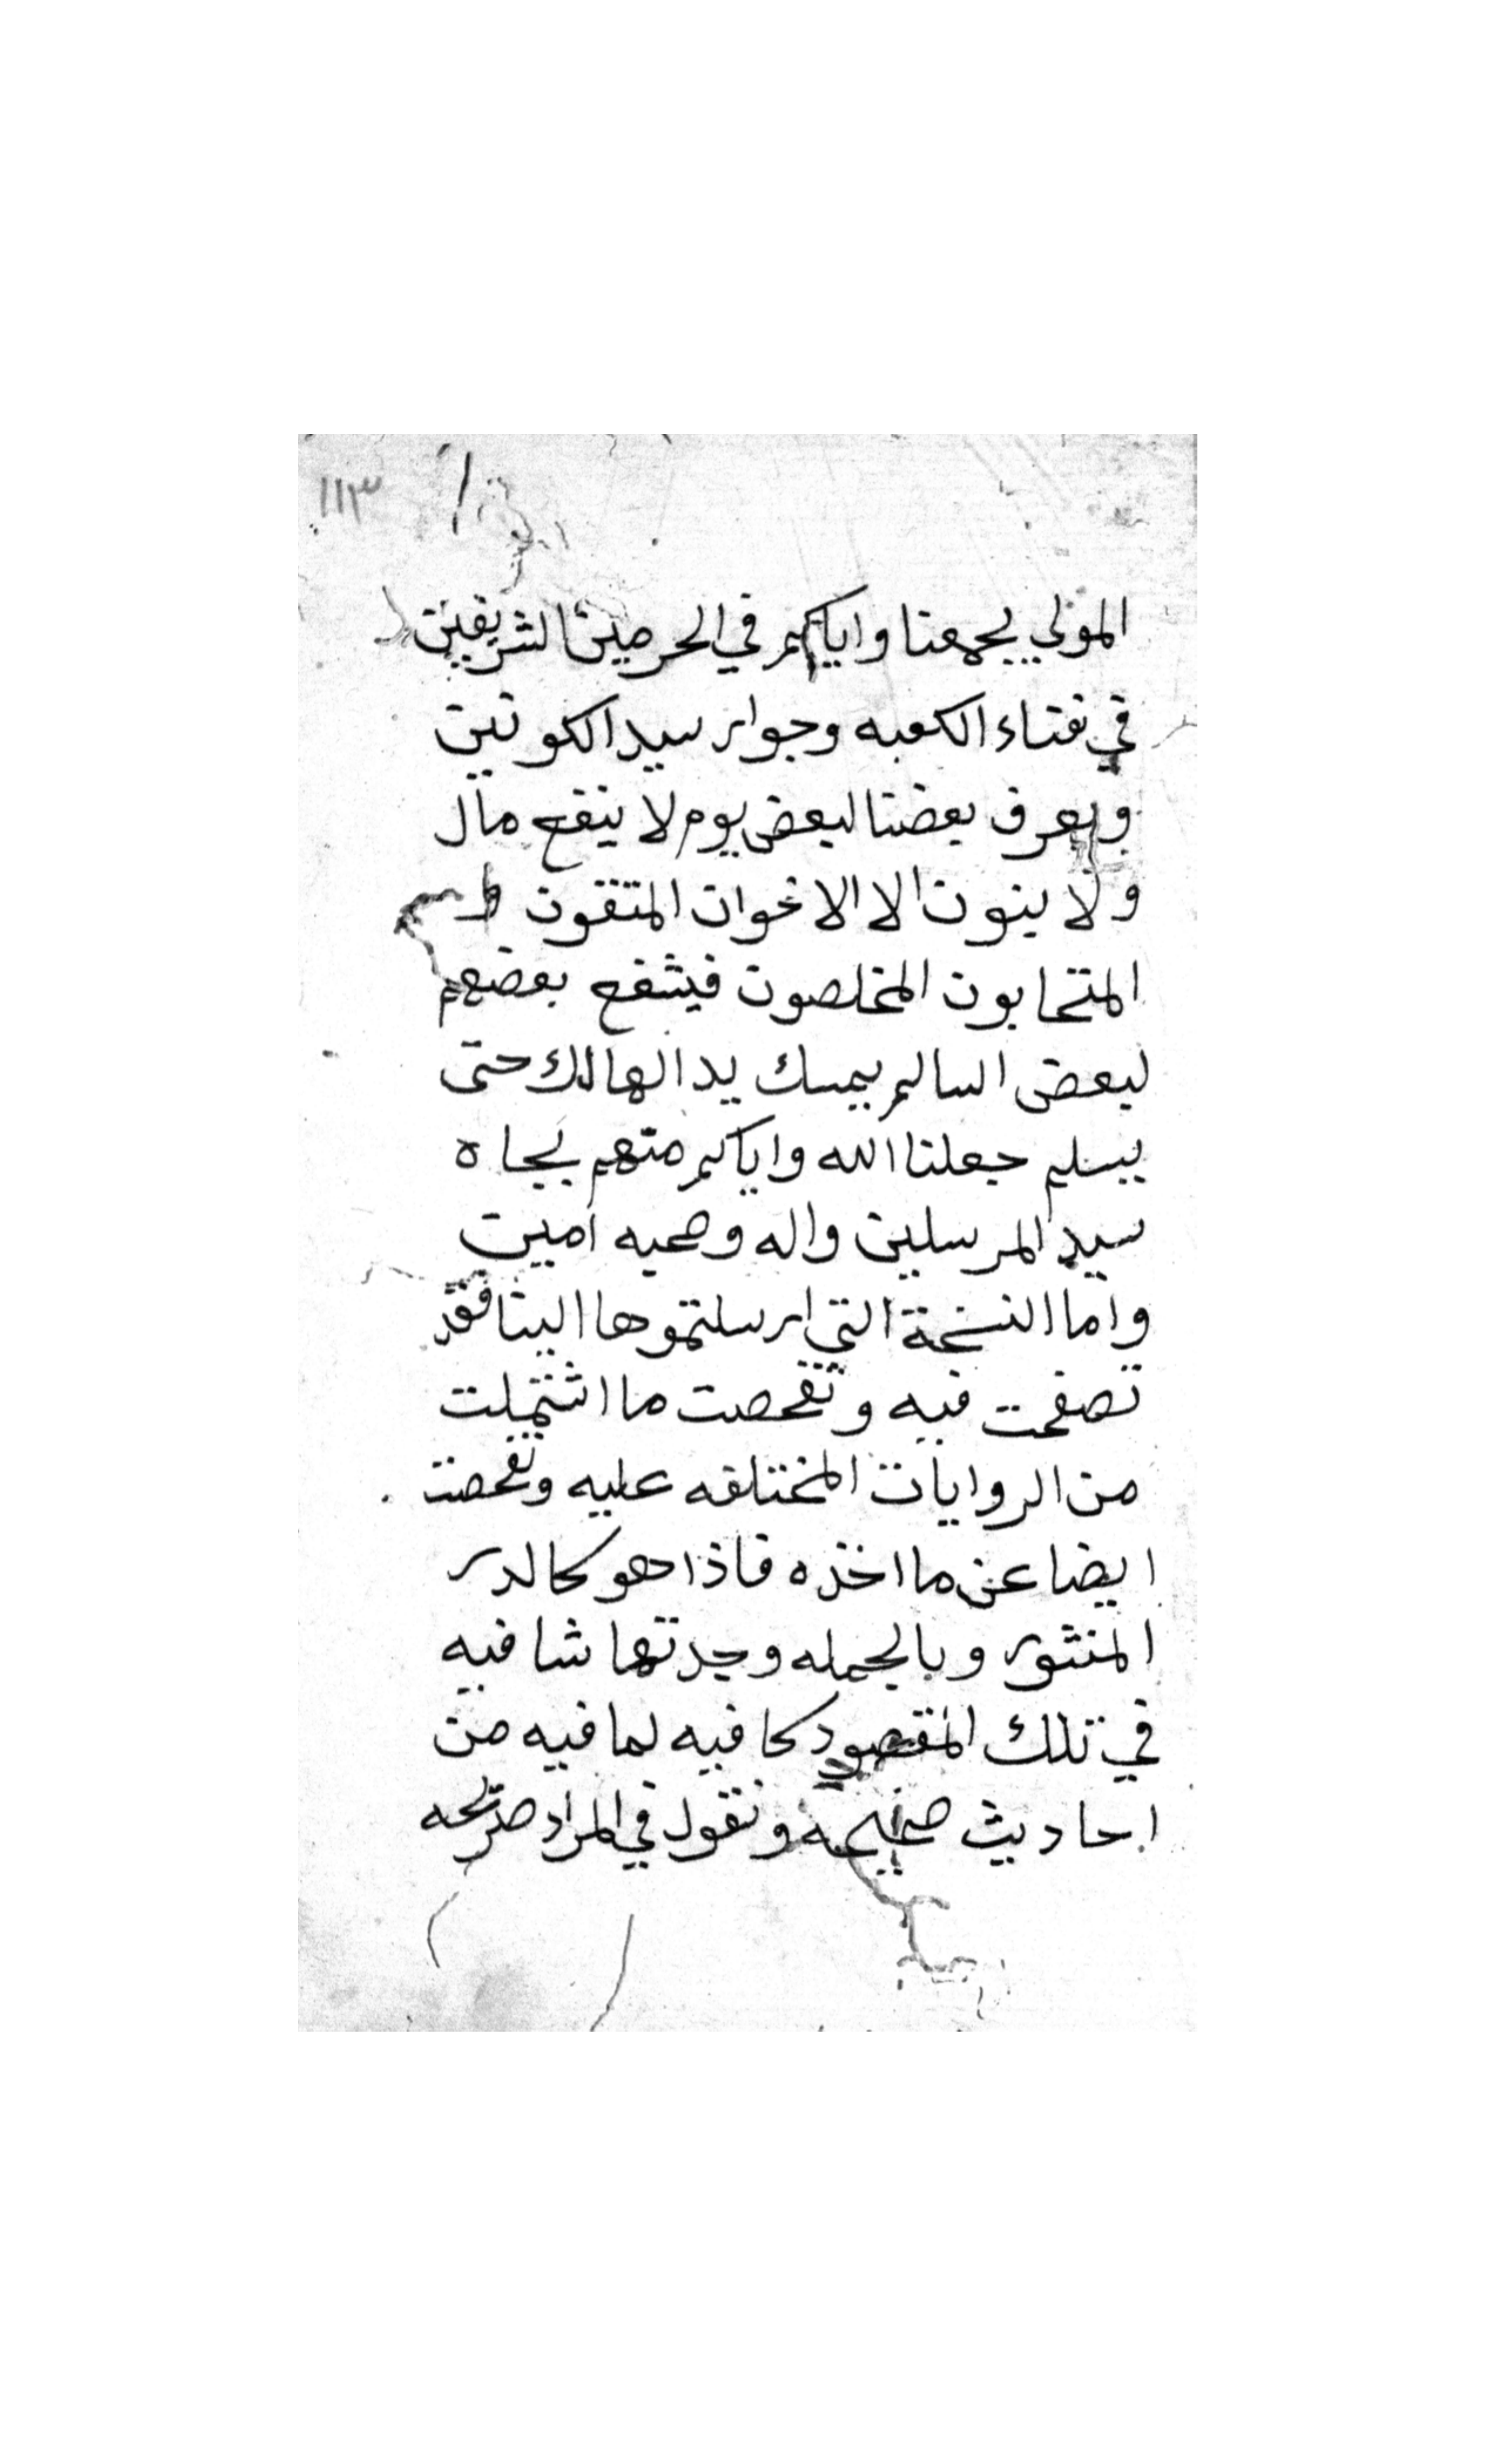 ١١٣
المولي يجمعنا واياكم في الحرمين الشريفين
في فناء الكعبه وجوار سيد الكونين
ويعرف بعضنا لبعض يوم لا ينفع مال
ولا بنون الا الاخوان المتقون
المتحابون المخلصون فيشفع بعضهم
لبعض السالم يمسك يد الهالك حتى
يسلم جعلنا الله واياكم منهم بجاه
سيد المرسلين واله وصحبه امين
واما النسخة التي ارسلتموها الينا فقد
تصفحت فيه وتفحصت ما اشتملت
من الروايات المختلفه عليه وتفحصت
ايضا عن ما اخذه فاذا هو كالدر
المنثور وبالجمله وجدتها شافيه
في تلك المقصود كافيه لما فيه من
احاديث صحيحه ونقول في المراد صريحه